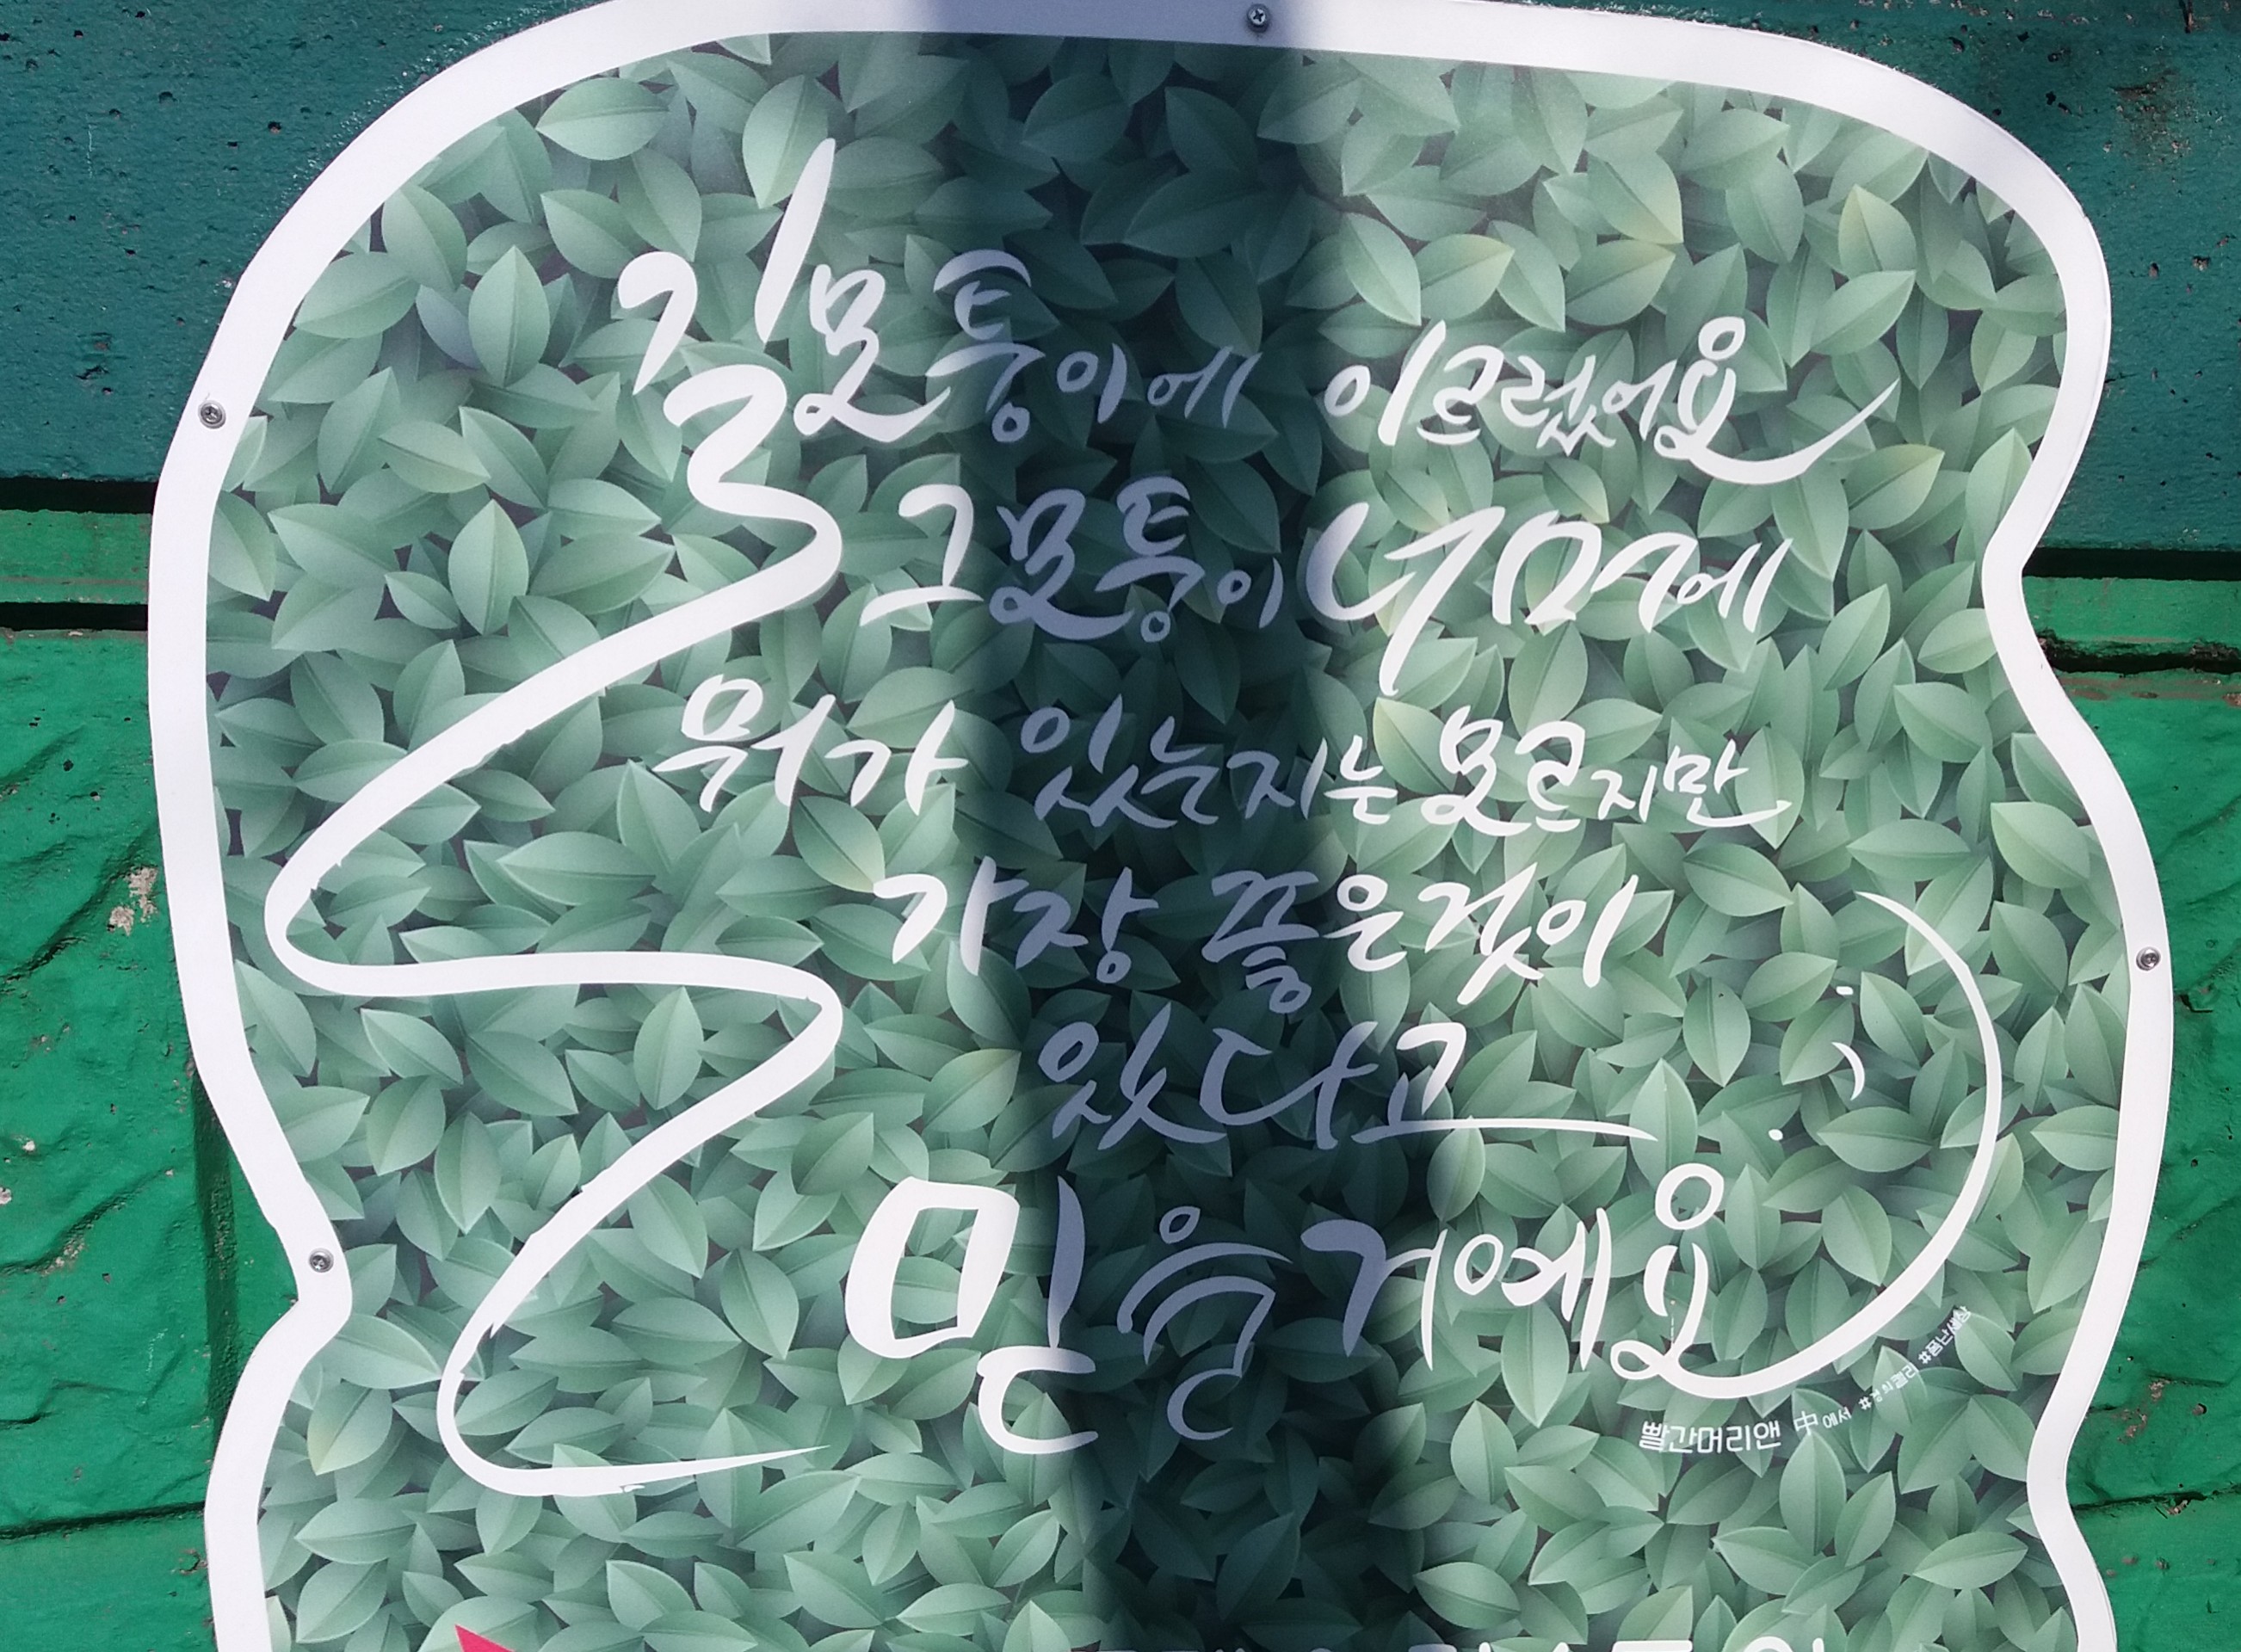 길모퉁이에 이르렀어요
그모퉁이 너머에
뭐가 있는지는 모르지만
가장 좋은것이
있다고
믿을거예요
빨간머리앤 中에서